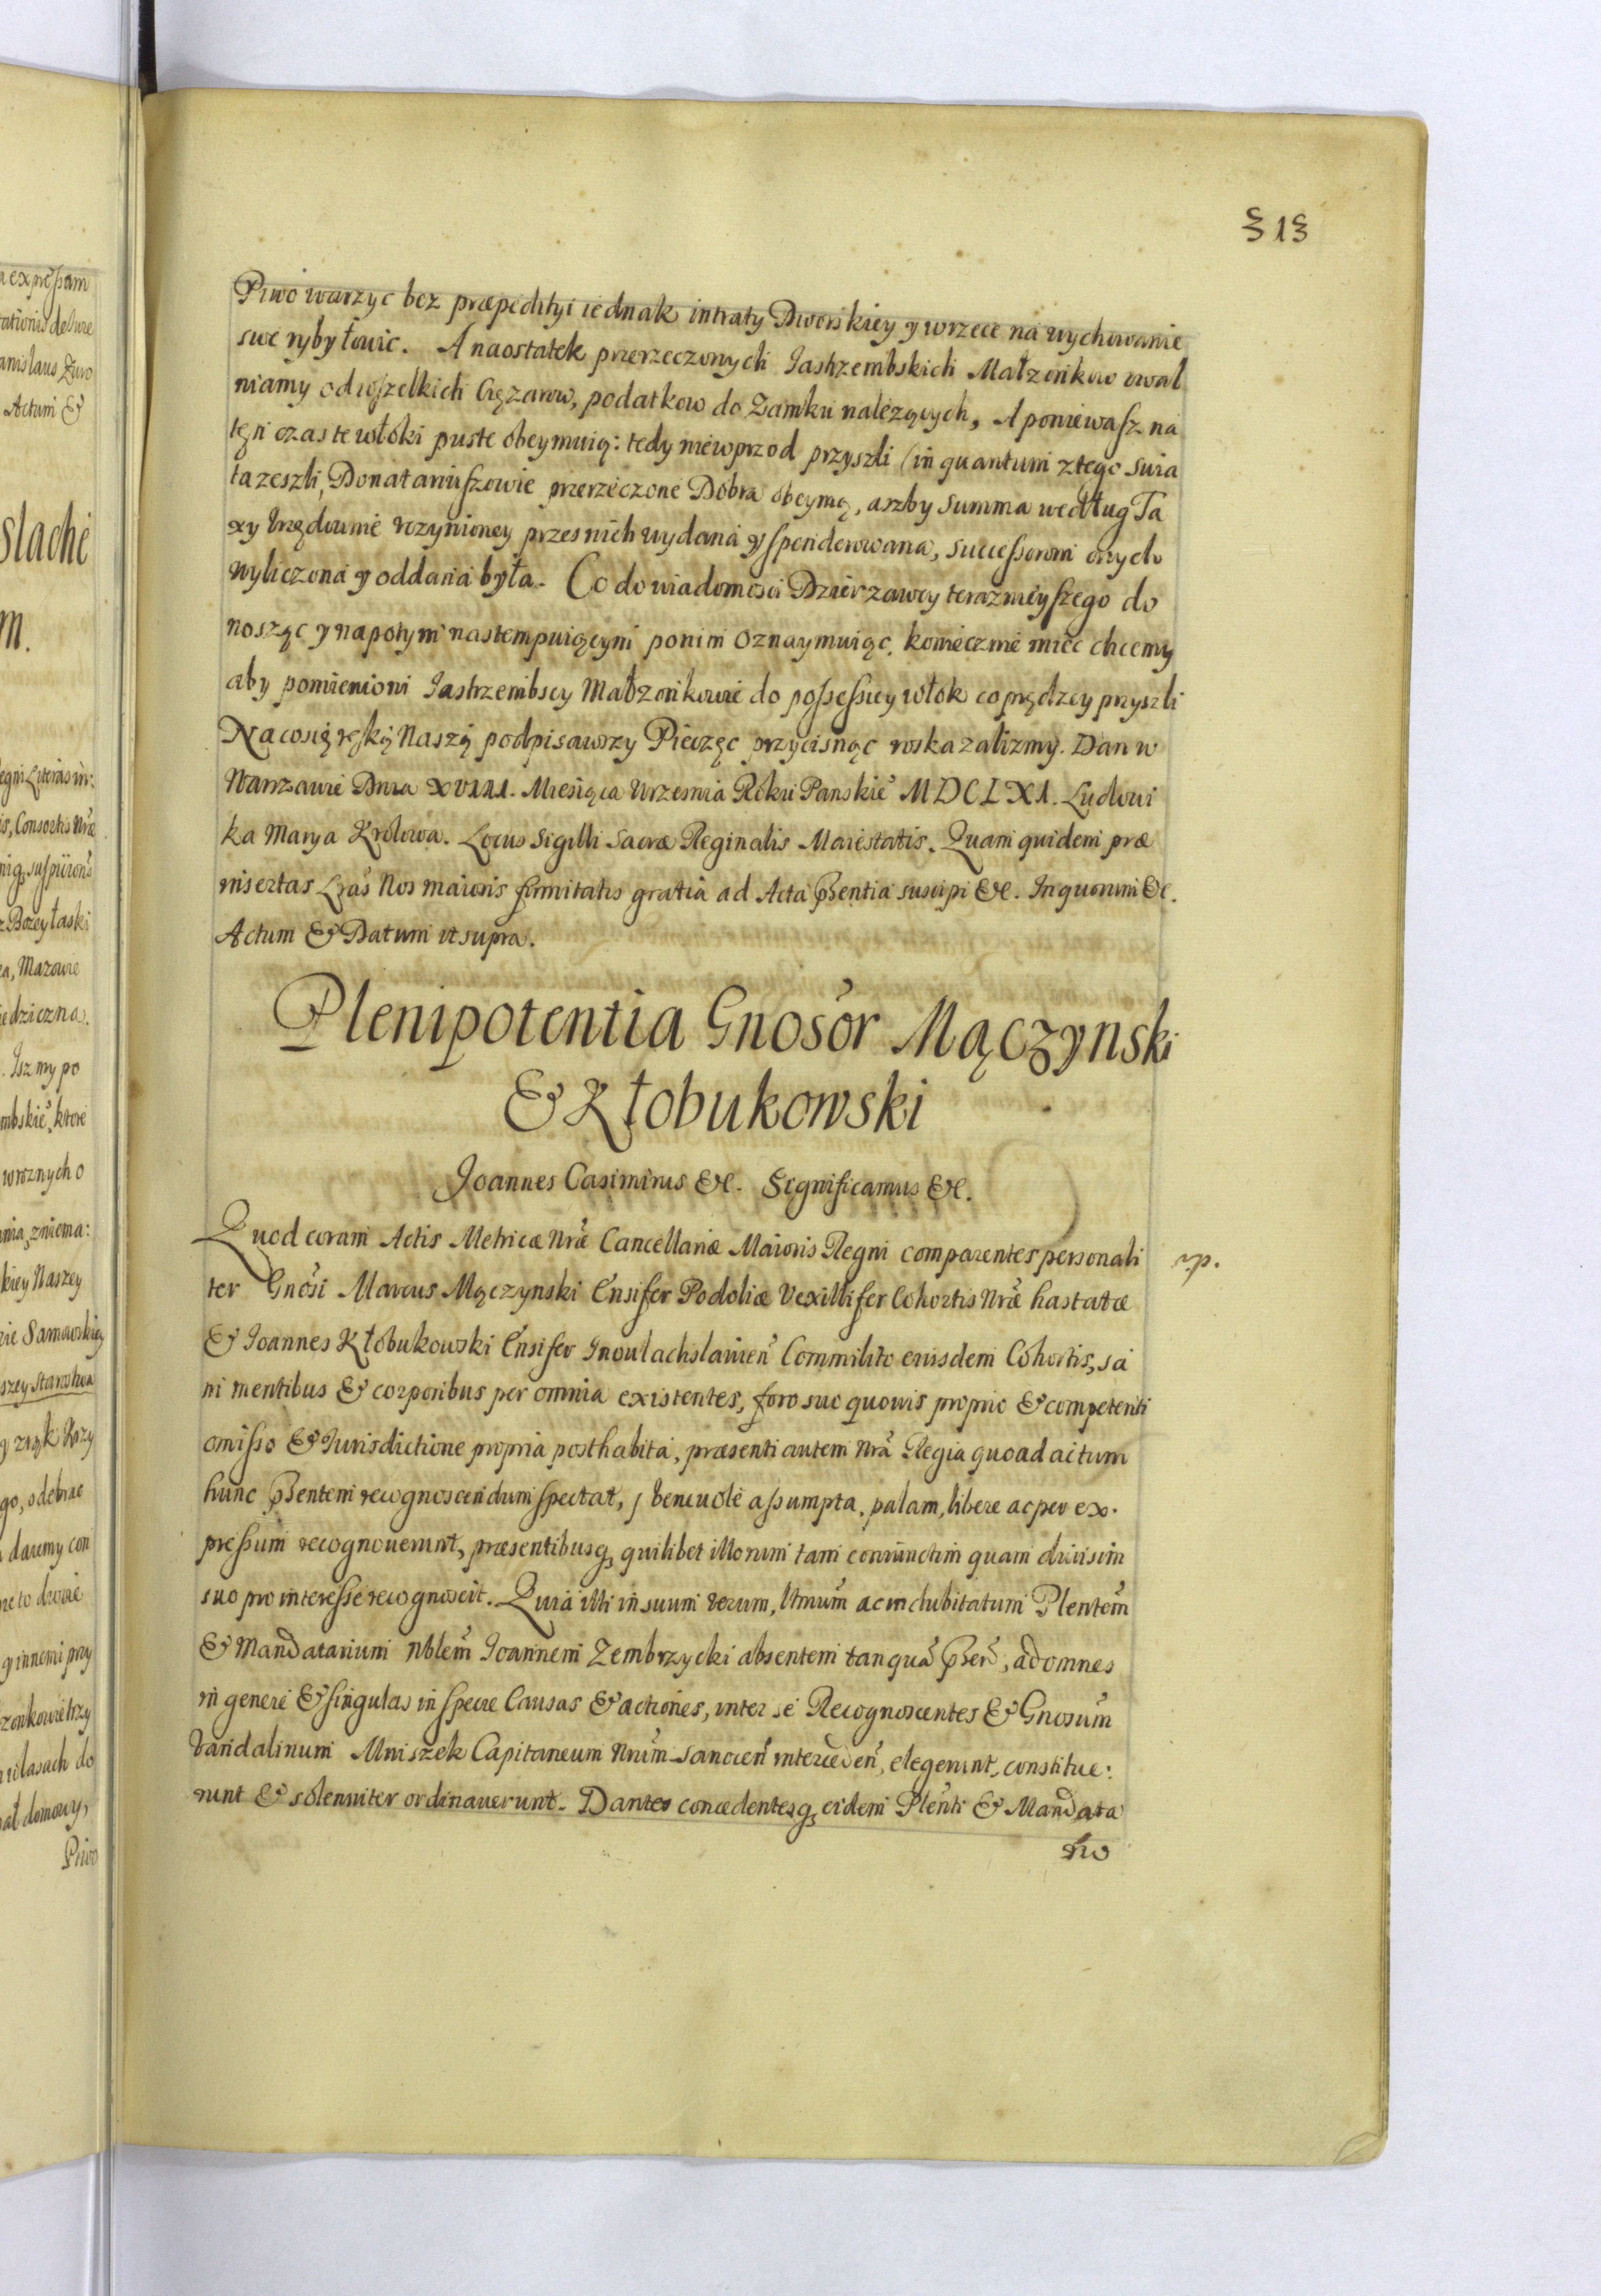 313
Piwo warzyc bez præpedityi iednak intraty Dworskiey y wrzece na wychowanie
swe ryby łowic. A naostatek przerzeczonych Jastrzembskich Małzonkow uwal
niamy od wszelkich Cięzarow, podatkow do Zamku nalezących, A poniewasz na
tęn czas te włoki puste obeymuią: tedy niewprzod przyszli (in quantum ztego swia
ta zeszli, Donatariuszowie przerzeczone Dobra obeymą, aszby Summa według Ta
xy Urzędownie vczynioney przes nich wydana y spenderowana, successorom onych
wyliczona y oddana była. Co do wiadomosci Dzierzawcy teraznieyszego do
nosząc y napotym nastempuiącym ponim oznaymuiąc, koniecznie miec chcemy
aby pomienioni Jastrzembscy Małzonkowie do possessiey włok co prędzey przyszli
Na co się ręką Naszą podpisawszy Pieczęc przycisnąc roskazalizmy. Dan w
Warszawie Dnia XVIII. Miesiąca Wrzesnia Roku Panskie̕ MDCLXI. Ludowi
ka Marya Krolowa. Locus Sigilli Sacræ Reginalis Maiestatis. Quam quidem præ
insertas Lras Nos maioris firmitatis gratia ad Acta pñtia suscipi &c. In quorum &c.
Actum & Datum vt supra.
Plenipotentia Gnosor Mączynski
& Kłobukowski
Joannes Casimirus &c. Significamus &c.
Quod coram Actis Metricæ Nræ Cancellariæ Maioris Regni comparentes personali
ter Gnosi Marcus Mączynski Ensifer Podoliæ Vexillifer Cohortis Nræ hastatæ
& Joannes Kłobukowski Ensifer Inowlachslavien̄ Commilito eiusdem Cohortis, sa
ni mentibus & corporibus per omnia existentes, foro suo quouis proprio & competenti
omisso & Jurisdictione propria posthabita, præsenti autem Nra Regia quoad actum
hunc pñtem recognoscendum spectat, beneuole assumpta, palam, libere ac per ex-
pressum recognouerunt, præsentibusq, quilibet illorum tam coniunctim quam diuisim
suo pro interesse recognoscit. Quia illi in suum verum, ltmum ac indubitatum Plentem
& Mandatarium Nblem Joannem Zembrzycki absentem tanqua pñten, ad omnes
in genere & singulas in specie Causas & actiones, inter se Recognoscentes & Gnosum
Vandalinum Mniszek Capitaneum Nrum Sanocen̄ interceden̄, elegerunt, constitue:
runt & solenniter ordinauerunt. Dantes concedentesq, eidem Plenti & Mandata
rio